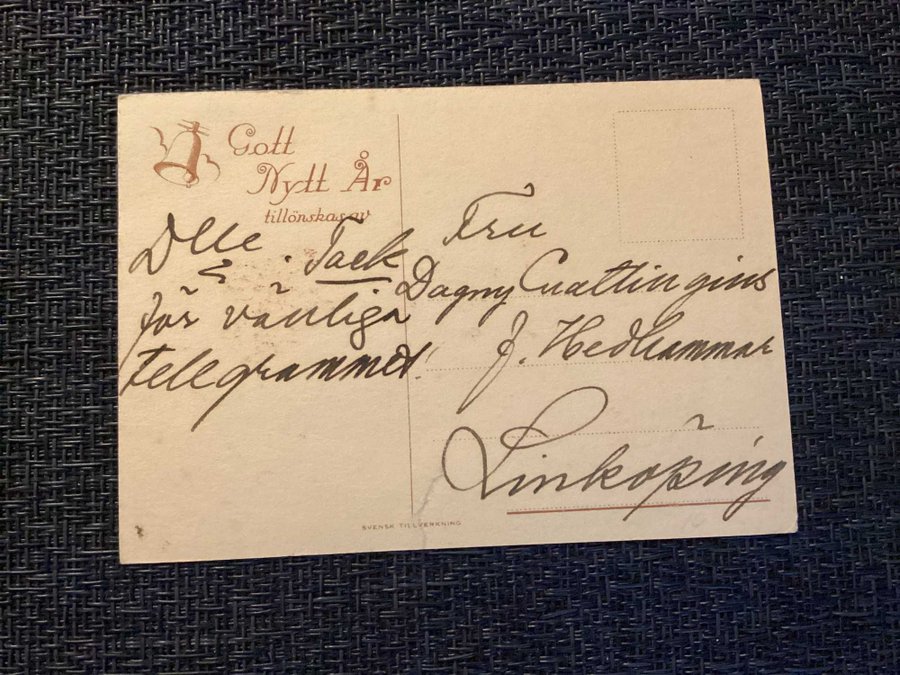 Gott
Nytt År
tillönskas av
Tack
för vänliga
telegrammet!
Fru
Dagny Cnattingius
f. Hedhammar
Linköping
SVENSK TILLVERKNING